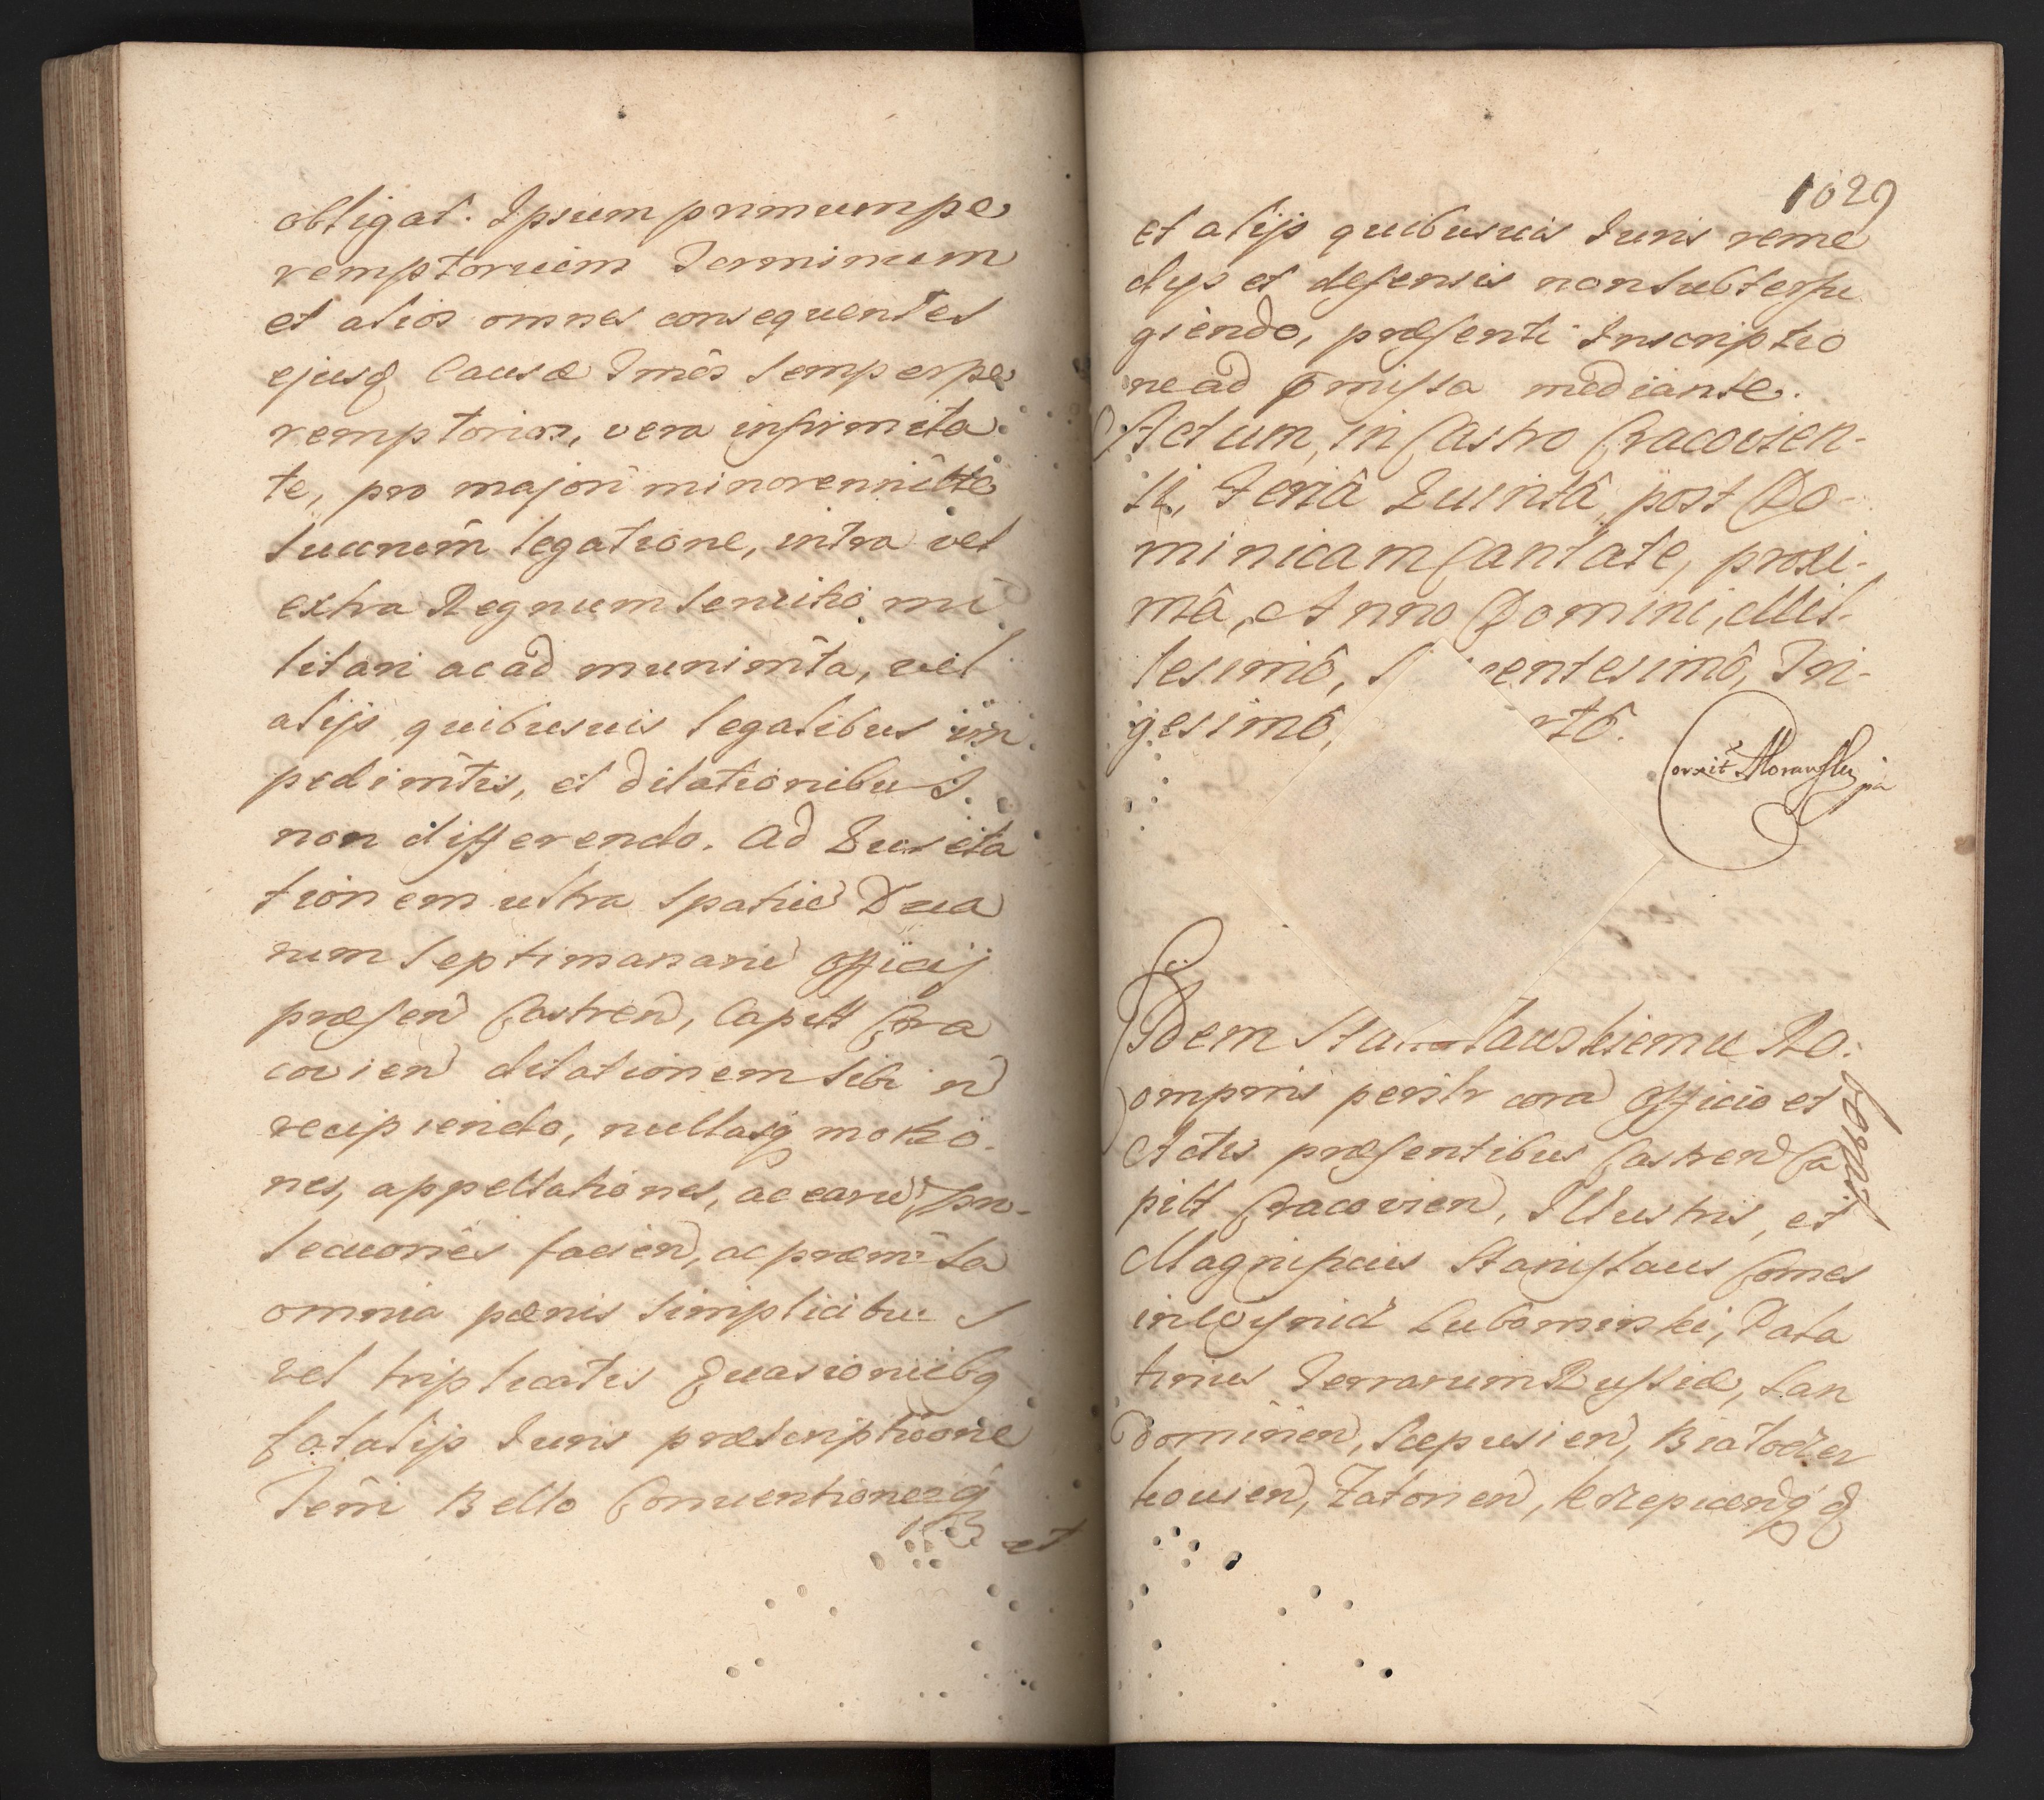 obligat. Ipsum primum pe
remptorium Terminum
et alios omnes consequentes
ejusq Causæ Tmõs semper pe
remptorios, vera infirmita
te, pro majori minorennitte
suorum legatione, intra vel
extra Regnum servitio mi
litari ac ad munimĩta, vel
alijs quibusuis legalibus im
pedimĩtis, et dilationibus
non differendo. Ad
tionem ultra spatiũ Dua
rum Septimanarũ Officij
præsen Castren, Capitt Cra
covien dilationem sibi ñ
recipiendo, nullasq motio
nes, appellationes, ac earũ pro
secuoñes facien, ac præmĩsa
omnia pænis simplicibus
vel triplicatis Evasionibq
fatalij Iuris præscriptiõne
Tem̃i Bello Conventioneq
et
1029
et alijs quibusuis Iuris reme
dijs et defensis non subterfu
giendo, præsenti Inscriptio
ne ad p̃missa mediante.
Actum, in Castro Cracovien-
si, Feriâ Quintâ, post Do-
minicam Cantate, proxi-
mâ, Anno Domini, Mil-
lesimô, entesimô, Tri-
gesimô, rtô.
Idem laus kiemu Ro.
omparis persltr corã Officio et
Actis præsentibus Castren Ca
pitt Cracovien, Illustris, et
Magnificus Stanislaus Comes
in Wisnicz Lubomirski, Pala
tinus Terrarum Russiæ, San
domirien, Scepusien, Białocer
kovien, Zatorien, Krzepicenq &